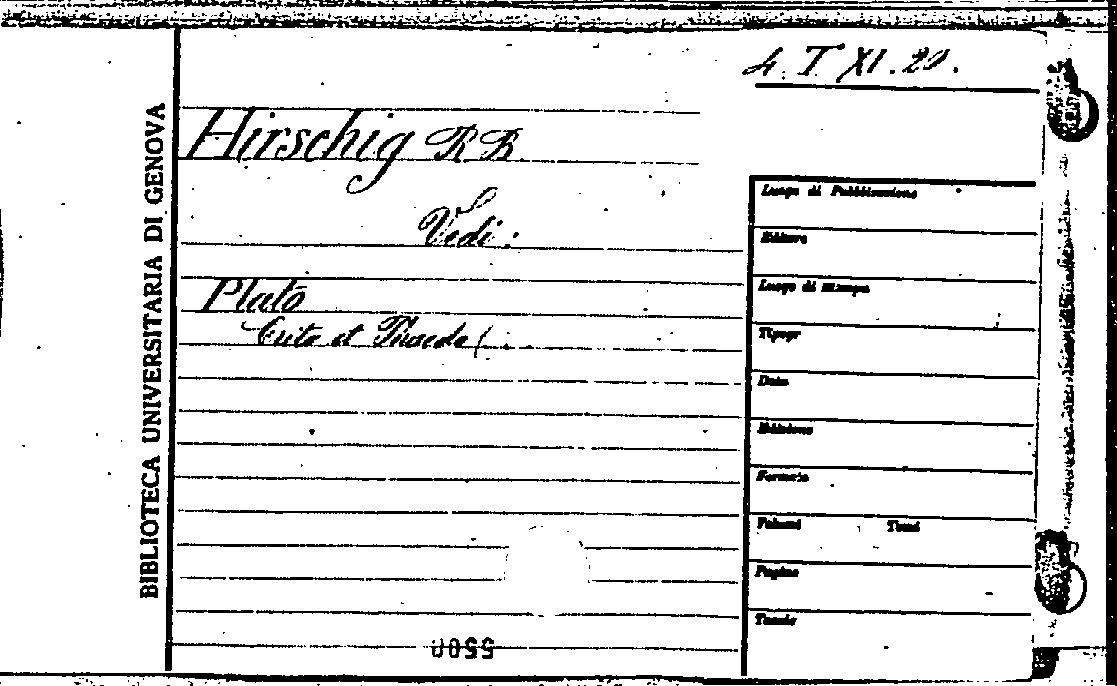 4. T. XI. 20.
BIBLIOTECA UNIVERSITARIA DI GENOVA
Hirschig R B
Vedi:
Plato
et
Luogo di Pubblicazione
Editore
Luogo di stampa
Tipogr
Data
Edizione
Formato
Volumi Tomi
Pagine
Tavole